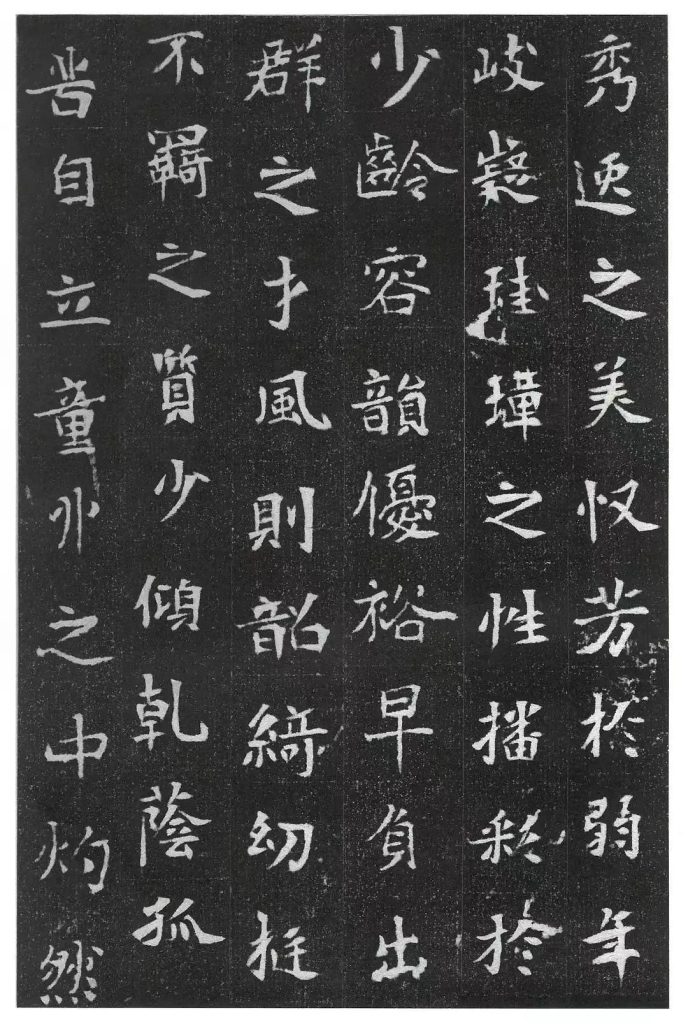 秀逸之美収芳於弱年
岐嶷珪璋之性播彩於
少齡容韻優裕早負出
群之才風則韶綺幼挺
不羈之質少傾乾蔭孤
苦自立童丱之中灼然